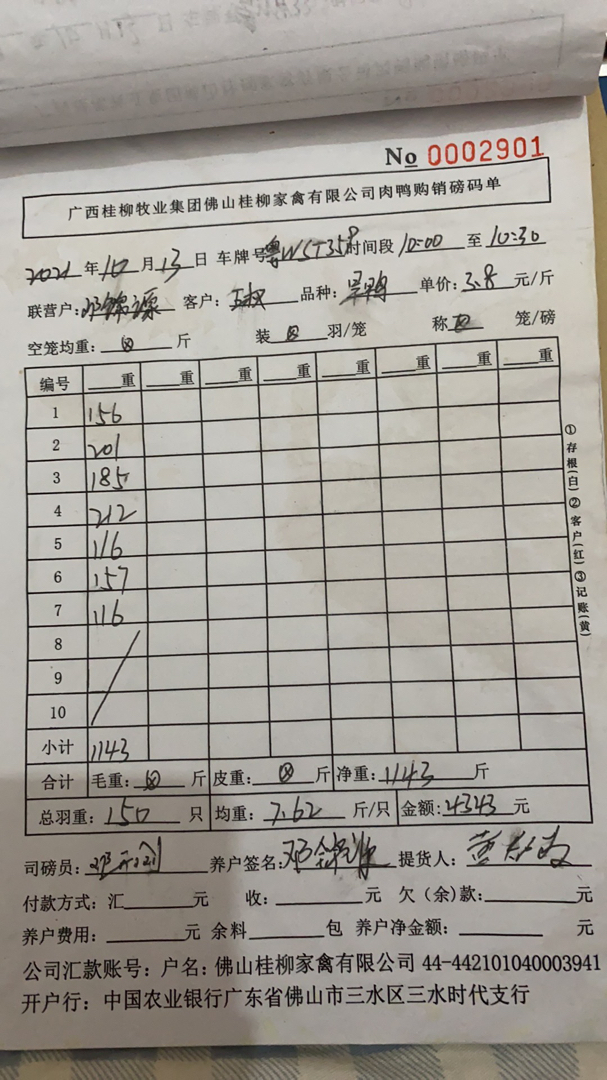 No 0002901
广西桂柳牧业集团佛山桂柳家禽有限公司肉鸭购销磅码单
2021年10月13日 车牌号粤WST358时间段10:00至10:30
联营户: 客户: 品种: 单价:3.8元/斤
空笼均重:⊗斤 装⊗羽/笼 称⊗笼/磅
编号 重 重 重 重 重 重 重 重
1 156
2 201
3 185
4 212
5 116
6 157
7 116
8
9
10
小计 1143
合计 毛重:⊗斤 皮重:⊗斤 净重:1143斤
总羽重:150只 均重:7.62斤/只 金额:4343元
司磅员: 养户签名: 提货人:
付款方式:汇 元 收: 元 欠(余)款: 元
养户费用: 元 余料 包 养户净金额: 元
公司汇款账号:户名:佛山桂柳家禽有限公司 44-442101040003941
开户行:中国农业银行广东省佛山市三水区三水时代支行
①存根(白)②客户(红)③记账(黄)